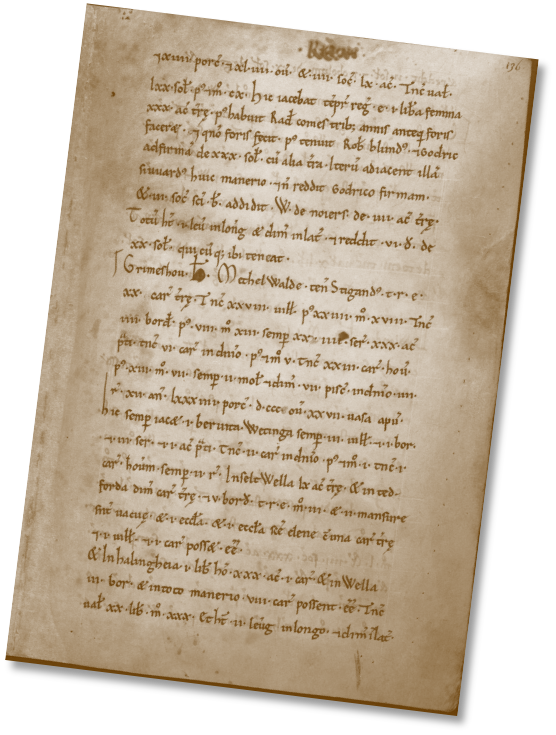 196
⁊ xiiii porc̄ · ⁊ xl · iiii · oū · & · iiii · soc̄ · lx · ac̄ · Tn̄c ual̄ ·
lxx · sol̄ · p̊ · m̊ · c · x · hic iacebat tēpr̄ reḡ · e · r · lib̄a femina
xxx · ac̄ t̄rę · p̊ habuit Rad̄ comes trib; annis anteq̄ foris
faceret · ⁊ qn̄o foris fecit · p̊ tenuit Rob̄ blund⁹ · ⁊ Godric
adfirmā de xxx · sol̄ · cū alia t̄ra · Iterū adiacent illā
siuuard⁹ huic manerio · ⁊ n̄ reddit Godrico firmam ·
& · iii · soc̄ sc̄i · b̄ · addidit · W · de noiers · de · iiii · ac̄ t̄rę ·
Totū ht̄ · ⁊ leū inlong̅ & dim̄ inlat̄ · ⁊ reddit · vi · đ · de
xx · sol̄ · quicūq; ibi teneat ·
Grimeshou · h̄ · Methel Walde · ten̄ Stigand⁹ · t · r · e ·
xx · car̄ t̄rę · Tn̄c xxviii · uilł · p̊ xxiiii · m̊ · xviii · Tn̄c
iiii · bord̄ · p̊ · viii · m̊ xiii · semp̄ xx · iiii · ser̄ · xxx · ac̄
p̄ti · tn̄c vi · car̄ indn̄io · p̊ · ⁊ m̊ v · Tn̄c xxiii · car̄ · hoū ·
p̊ · xiii · m̊ · vii · semp̄ · ii · mol̄ ⁊ dim̄ · vii · pisc̄ · indn̄io · iii ·
r̄ · xii · an̄ · lxxx iiii · porc̄ · d · ccc · oū · xxvii · uasa apū ·
hic semp̄ iacet · i · beruita · Wetinga semp̄ · iii · uilł · ⁊ · i · bor ·
⁊ · iii · ser̄ · ⁊ · i · ac̄ p̄ti · Tn̄c · ii · car̄ indn̄io · p̊ · ⁊ m̊ · i · tn̄c · i
car̄ · hoūm · semp̄ · ii · r̄ · InseltWella lx ac̄ t̄rę · & inted ·
forda dim̄ car̄ t̄rę · ⁊ v · bord̄ · t · r · e · m̊ · iii · & · ii · mansurę
sn̄t uacuę · & · i · eccła · & · i · eccła scę elene c̄ una car̄ t̄rę
⁊ · i · uilł · ⁊ · i · car̄ posset · eē ·
& In halingheia · i · lib̄ hō · xxx · ac̄ · i · car̄ · & in Wella
iii · bor · & intoto manerio · viii · car̄ possent · eē · Tn̄c
ual̄ xx · lib̄ · m̊ · xxx · Et ht̄ · ii · leug̅ inlongo · ⁊ dim̄ ilat̄ ·